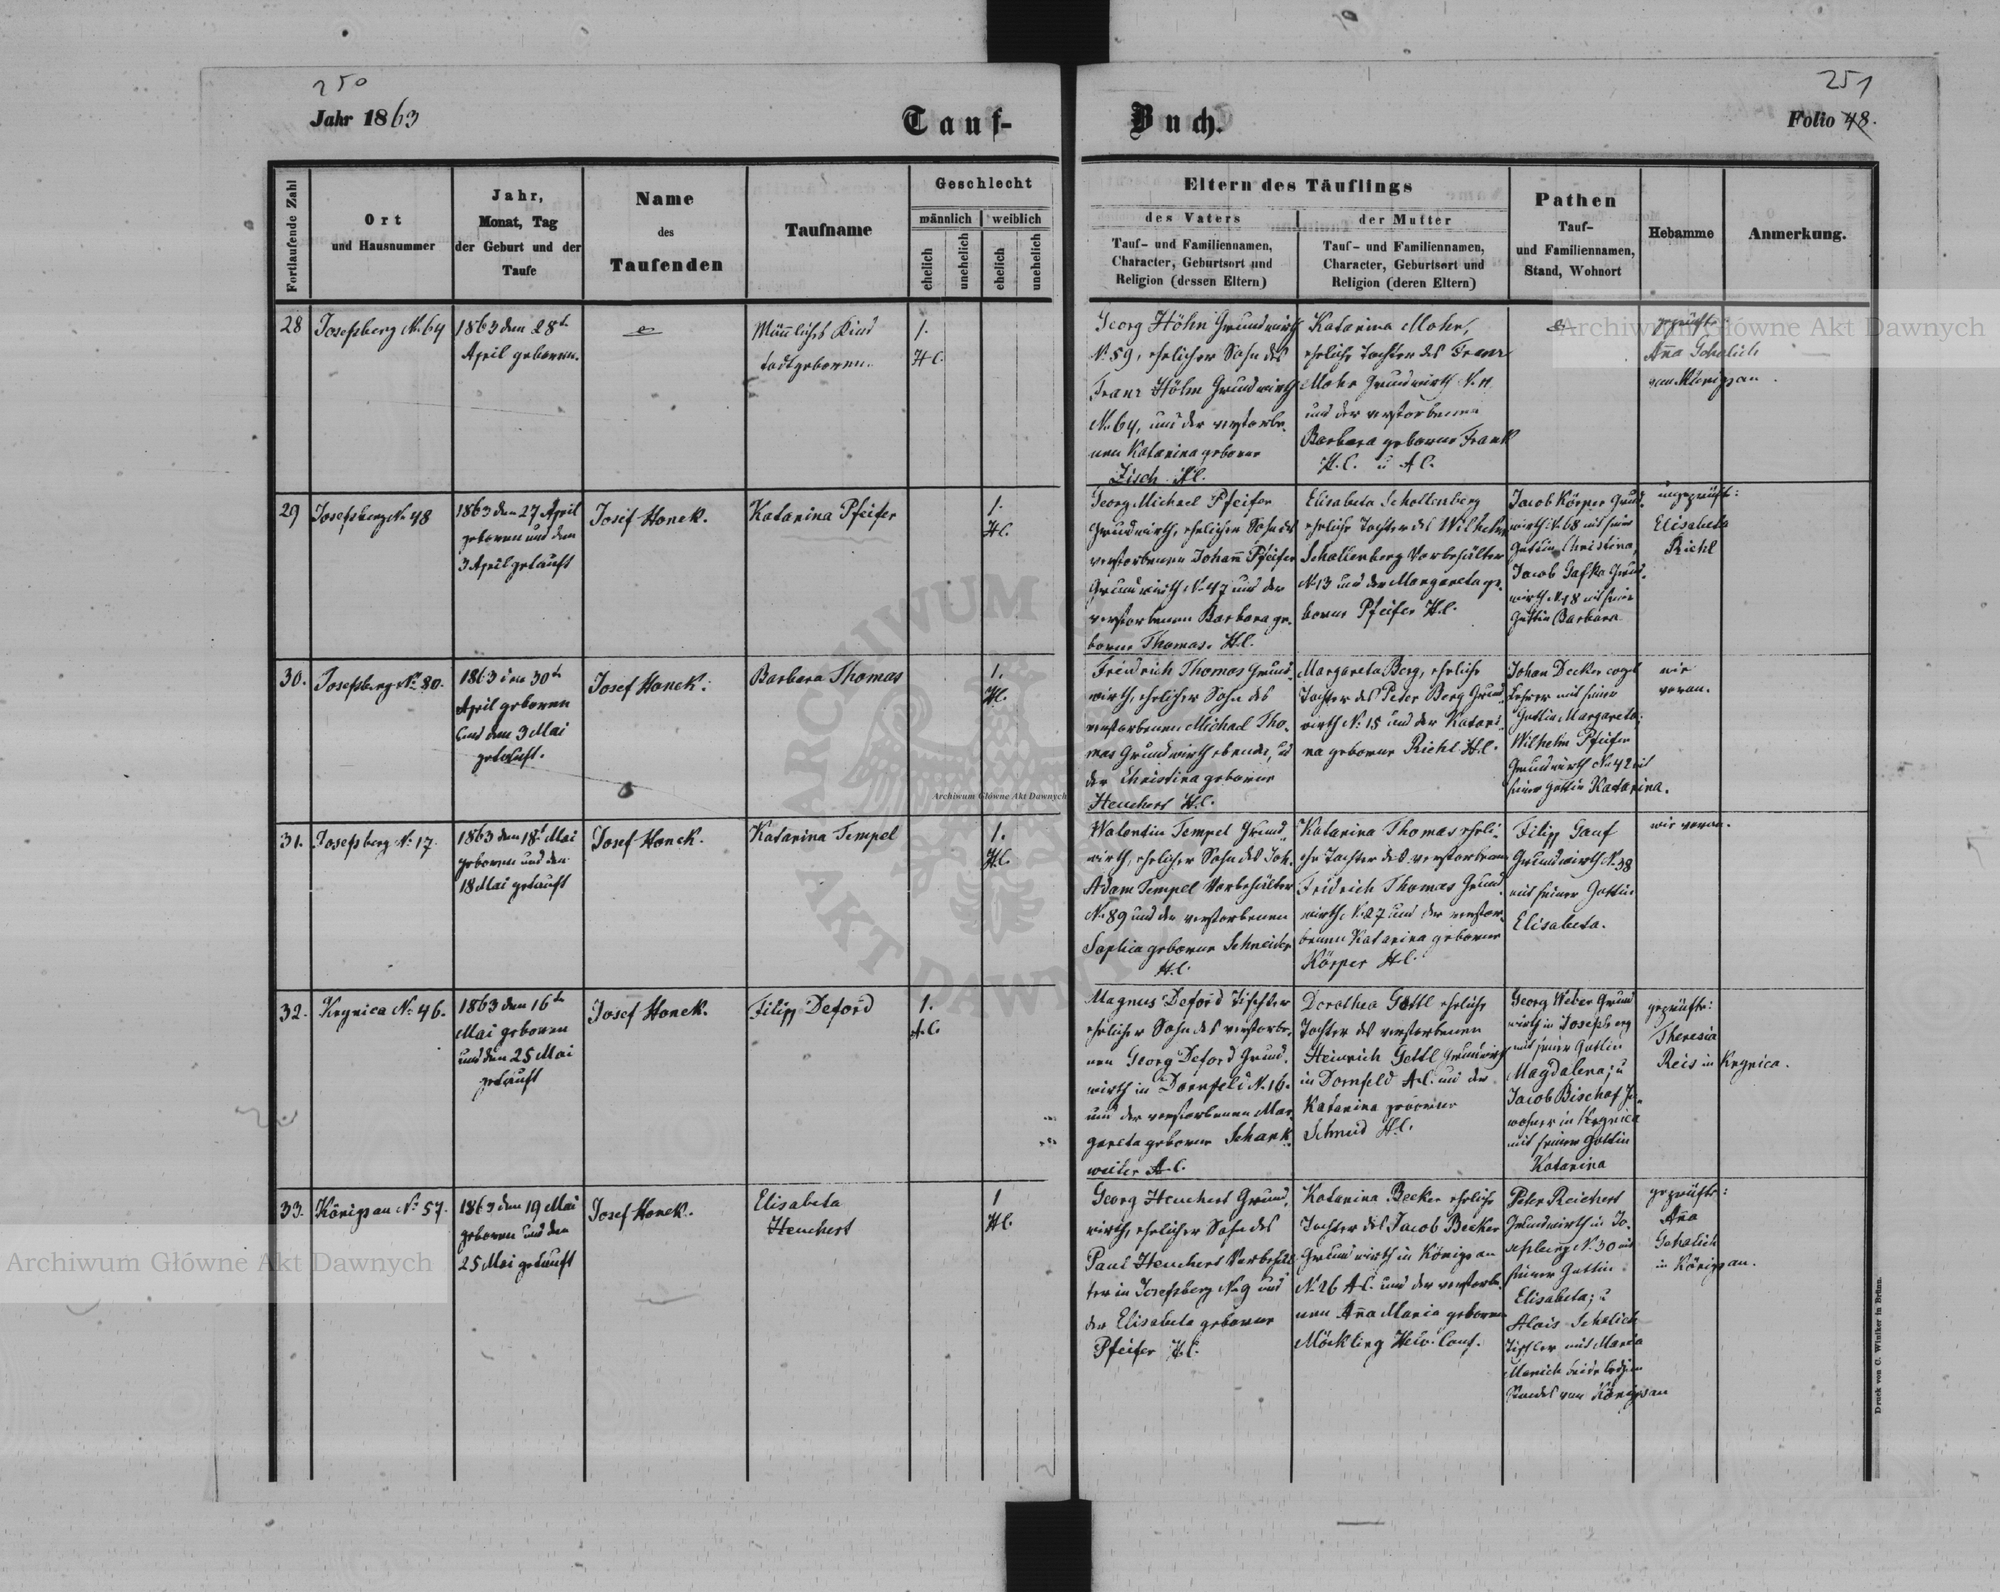 250
251
Jahr 1863
Tauf-
Buch.
Folio 48.
Fortlaufende Zahl
Ort
und Hausnummer
Jahr,
Monat, Tag
der Geburt und der
Taufe
Name
des
Taufenden
Taufname
Geschlecht
männlich
weiblich
ehelich
unehelich
ehelich
unehelich
Eltern des Täuflings
des Vaters
Tauf- und Familiennamen,
Character, Geburtsort und
Religion (dessen Eltern)
der Mutter
Tauf- und Familiennamen,
Character, Geburtsort und
Religion (deren Eltern)
Pathen
Tauf-
und Familiennamen,
Stand, Wohnort
Hebamme
Anmerkung.
28
Josefsberg No 64
1863 den 28t
April geboren.
Männliches Kind
todtgeboren.
1.
H.C.
Georg Höhn Grundwirth
No 59, ehelicher Sohn des
Franz Höhn Grundwirth
No 64, und der verstorbe-
nen Katarina geborne
Zisch H.C.
Katarina Mohr,
eheliche Tochter des Franz
Mohr Grundwirth
und der verstorbenen
Barbara geborne Frank
H.C. u A.C.
geprüfte
Anna
29
Josefsberg No 48
1863 den 27 April
geboren und den
3 April getauft
Josef Honek.
Katarina Pfeifer
1.
H.C.
Georg Michael Pfeifer
Grundwirth, ehelicher Sohn des
verstorbenen Johann Pfeifer
Grundwirth No 47 und der
verstorbenen Barbara ge-
borne Thomas. H.C.
Elisabeta Schallenberg
eheliche Tochter des Wilhelm
Schallenberg Vorbehälter
No 13 und der Margareta ge-
borne Pfeifer H.C.
Jacob Körper Grund-
wirth No 68 mit seiner
Gattin Christina,
Jacob Grund-
wirth No 18 mit seiner
Gattin Barbara
ungeprüft:
Elisabeta
Riehl
30.
Josefsberg No 80.
1863 den 30t
April geboren
und den 3 Mai
getauft.
Josef Honek.
Barbara Thomas
1.
H.C.
Friedrich Thomas Grund-
wirth, ehelicher Sohn des
verstorbenen Michael Tho-
mas Grundwirth ebenda, und
der Christina geborne
Heuchert H.C.
Margareta Berg, eheliche
Tochter des Peter Berg Grund-
wirth No 15 und der Katari-
na geborne Riehl H.C.
Johan Decker
Lehrer mit seiner
Gattin Margareta;
Wilhelm Pfeifer
Grundwirth No 42 mit
seiner Gattin Katarina.
wie
voran.
31.
Josefsberg No 17.
1863 den 18t Mai
geboren und den
18 Mai getauft
Josef Honek.
Katarina Tempel
1.
H.C.
Walentin Tempel Grund-
wirth, ehelicher Sohn des Joh.
Adam Tempel Vorbehälter
No 89 und der verstorbenen
Sophia geborne Schneider
H.C.
Katarina Thomas eheli-
che Tochter des verstorbenen
Fridrich Thomas Grund-
wirth No 27 und der verstor-
benen Katarina geborne
Körper H.C.
Filipp Gauf
Grundwirth No 38
mit seiner Gattin
Elisabeta.
wie voran.
32.
Krynica No 46.
1863 den 16t
Mai geboren
und den 25 Mai
getauft
Josef Honek.
Filipp Deford
1.
A.C.
Magnus Deford Tischler
ehelicher Sohn des verstorbe-
nen Georg Deford Grund-
wirth in Dornfeld No 16.
und der verstorbenen Mar-
gareta geborne Schank-
weiler A.C.
Dorothea Gottl eheliche
Tochter des verstorbenen
Heinrich Gottl Grundwirth
in Dornfeld A.C. und der
Katarina geborne
Schmid H.C.
Georg Weber Grund-
wirth in Josephsberg
mit seiner Gattin
Magdalena; u
Jacob Bischof In-
wohner in Krynica
mit seiner Gattin
Katarina
geprüfte:
Theresia
Reis in Krynica.
33.
Königsau No 57.
1863 den 19 Mai
geboren und den
25 Mai getauft
Josef Honek.
Elisabeta
Heuchert
1
H.C.
Georg Heuchert Grund-
wirth, ehelicher Sohn des
Paul Heuchert Vorbehäl-
ter in Josefsberg No 9 und
der Elisabeta geborne
Pfeifer H.C.
Katarina Becker eheliche
Tochter des Jacob Becker
Grundwirth in Königsau
No 26 A.C. und der verstorbe-
nen Anna Maria geborne
Möckling Helv. Conf.
Peter Reichert
Grundwirth in Jo-
sefsberg No 30 mit
seiner Gattin
Elisabeta; u
Alois
Tischler mit Maria
von Königsau
geprüfte:
Anna
in Königsau.
Druck von C. Winiker in Brünn.
Archiwum Główne Akt Dawnych
Archiwum Główne Akt Dawnych
Archiwum Główne Akt Dawnych
ARCHIWUM
AKT DAWNYCH